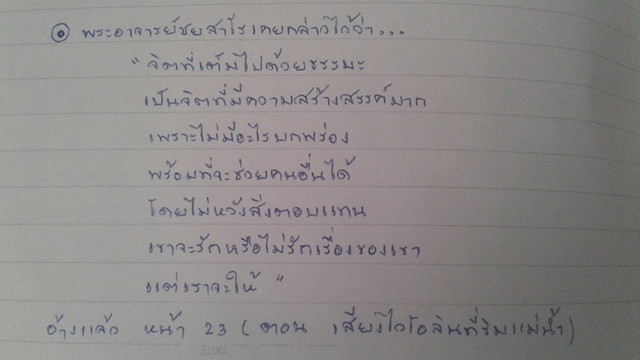 ⦿ พระอาจารย์ชยสาโรเคยกล่าวไว้ว่า...
"จิตที่เต็มไปด้วยธรรมะ
เป็นจิตที่มีความสร้างสรรค์มาก
เพราะไม่มีอะไรบกพร่อง
พร้อมที่จะช่วยคนอื่นได้
โดยไม่หวังสิ่งตอบแทน
เขาจะรักหรือไม่รักเรื่องของเขา
แต่เราจะให้"
อ้างแล้ว หน้า 23 (ตอน เสียงไวโอลินที่ริมแม่น้ำ)